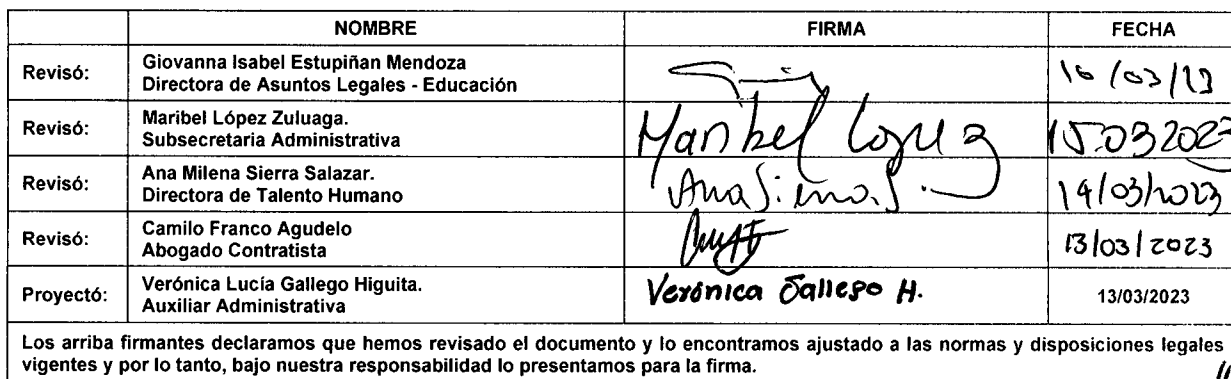 NOMBRE FIRMA FECHA
Revisó: Giovanna Isabel Estupiñan Mendoza
Directora de Asuntos Legales - Educación
16/03/23
Revisó: Maribel López Zuluaga.
Subsecretaria Administrativa
Maribel López 15.03 2023
Revisó: Ana Milena Sierra Salazar.
Directora de Talento Humano
Ana Sierra S. 14/03/2023
Revisó: Camilo Franco Agudelo
Abogado Contratista
13/03/2023
Proyectó: Verónica Lucía Gallego Higuita.
Auxiliar Administrativa
Verónica Gallego H. 13/03/2023
Los arriba firmantes declaramos que hemos revisado el documento y lo encontramos ajustado a las normas y disposiciones legales
vigentes y por lo tanto, bajo nuestra responsabilidad lo presentamos para la firma.